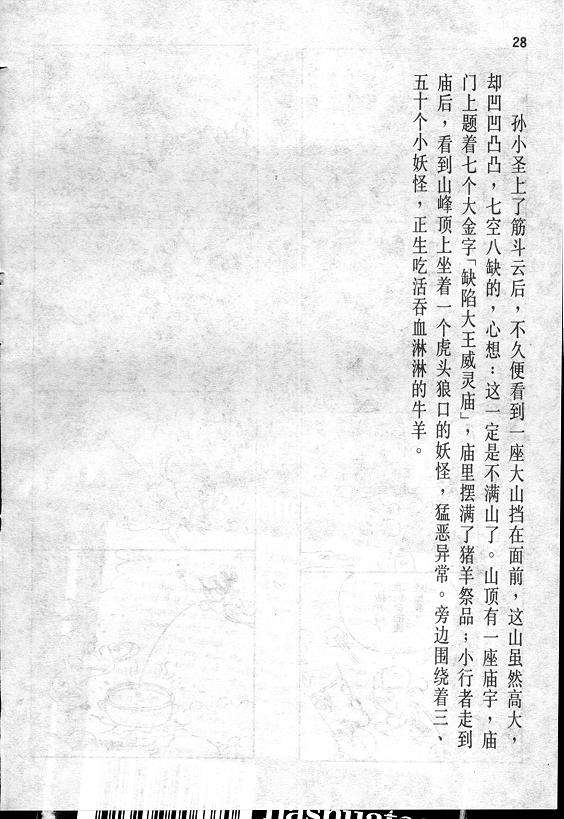 28
孙小圣上了筋斗云后，不久便看到一座大山挡在面前，这山虽然高大，
却凹凹凸凸，七空八缺的，心想：这一定是不满山了。山顶有一座庙宇，庙
门上题着七个大金字「缺陷大王威灵庙」，庙里摆满了猪羊祭品；小行者走到
庙后，看到山峰顶上坐着一个虎头狼口的妖怪，猛恶异常。旁边围绕着三、
五十个小妖怪，正生吃活吞血淋淋的牛羊。